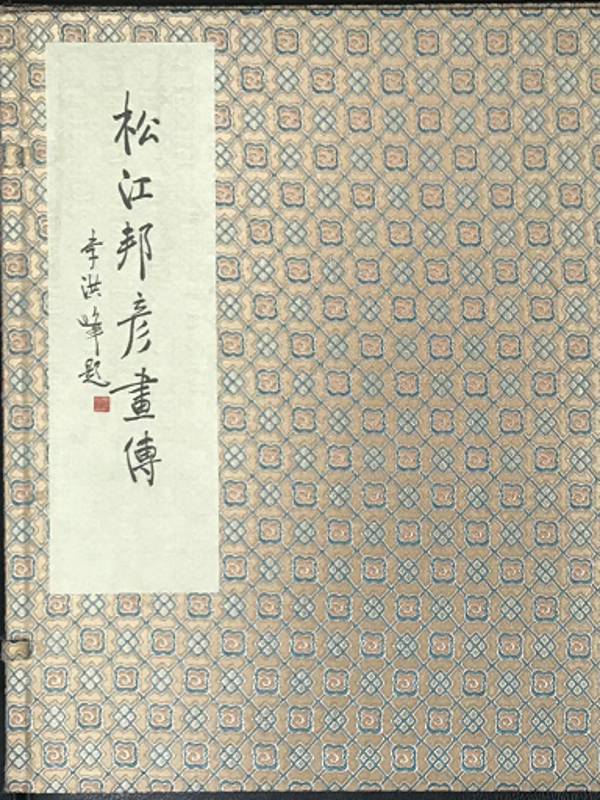 松江邦彦畫傳
李洪峰題